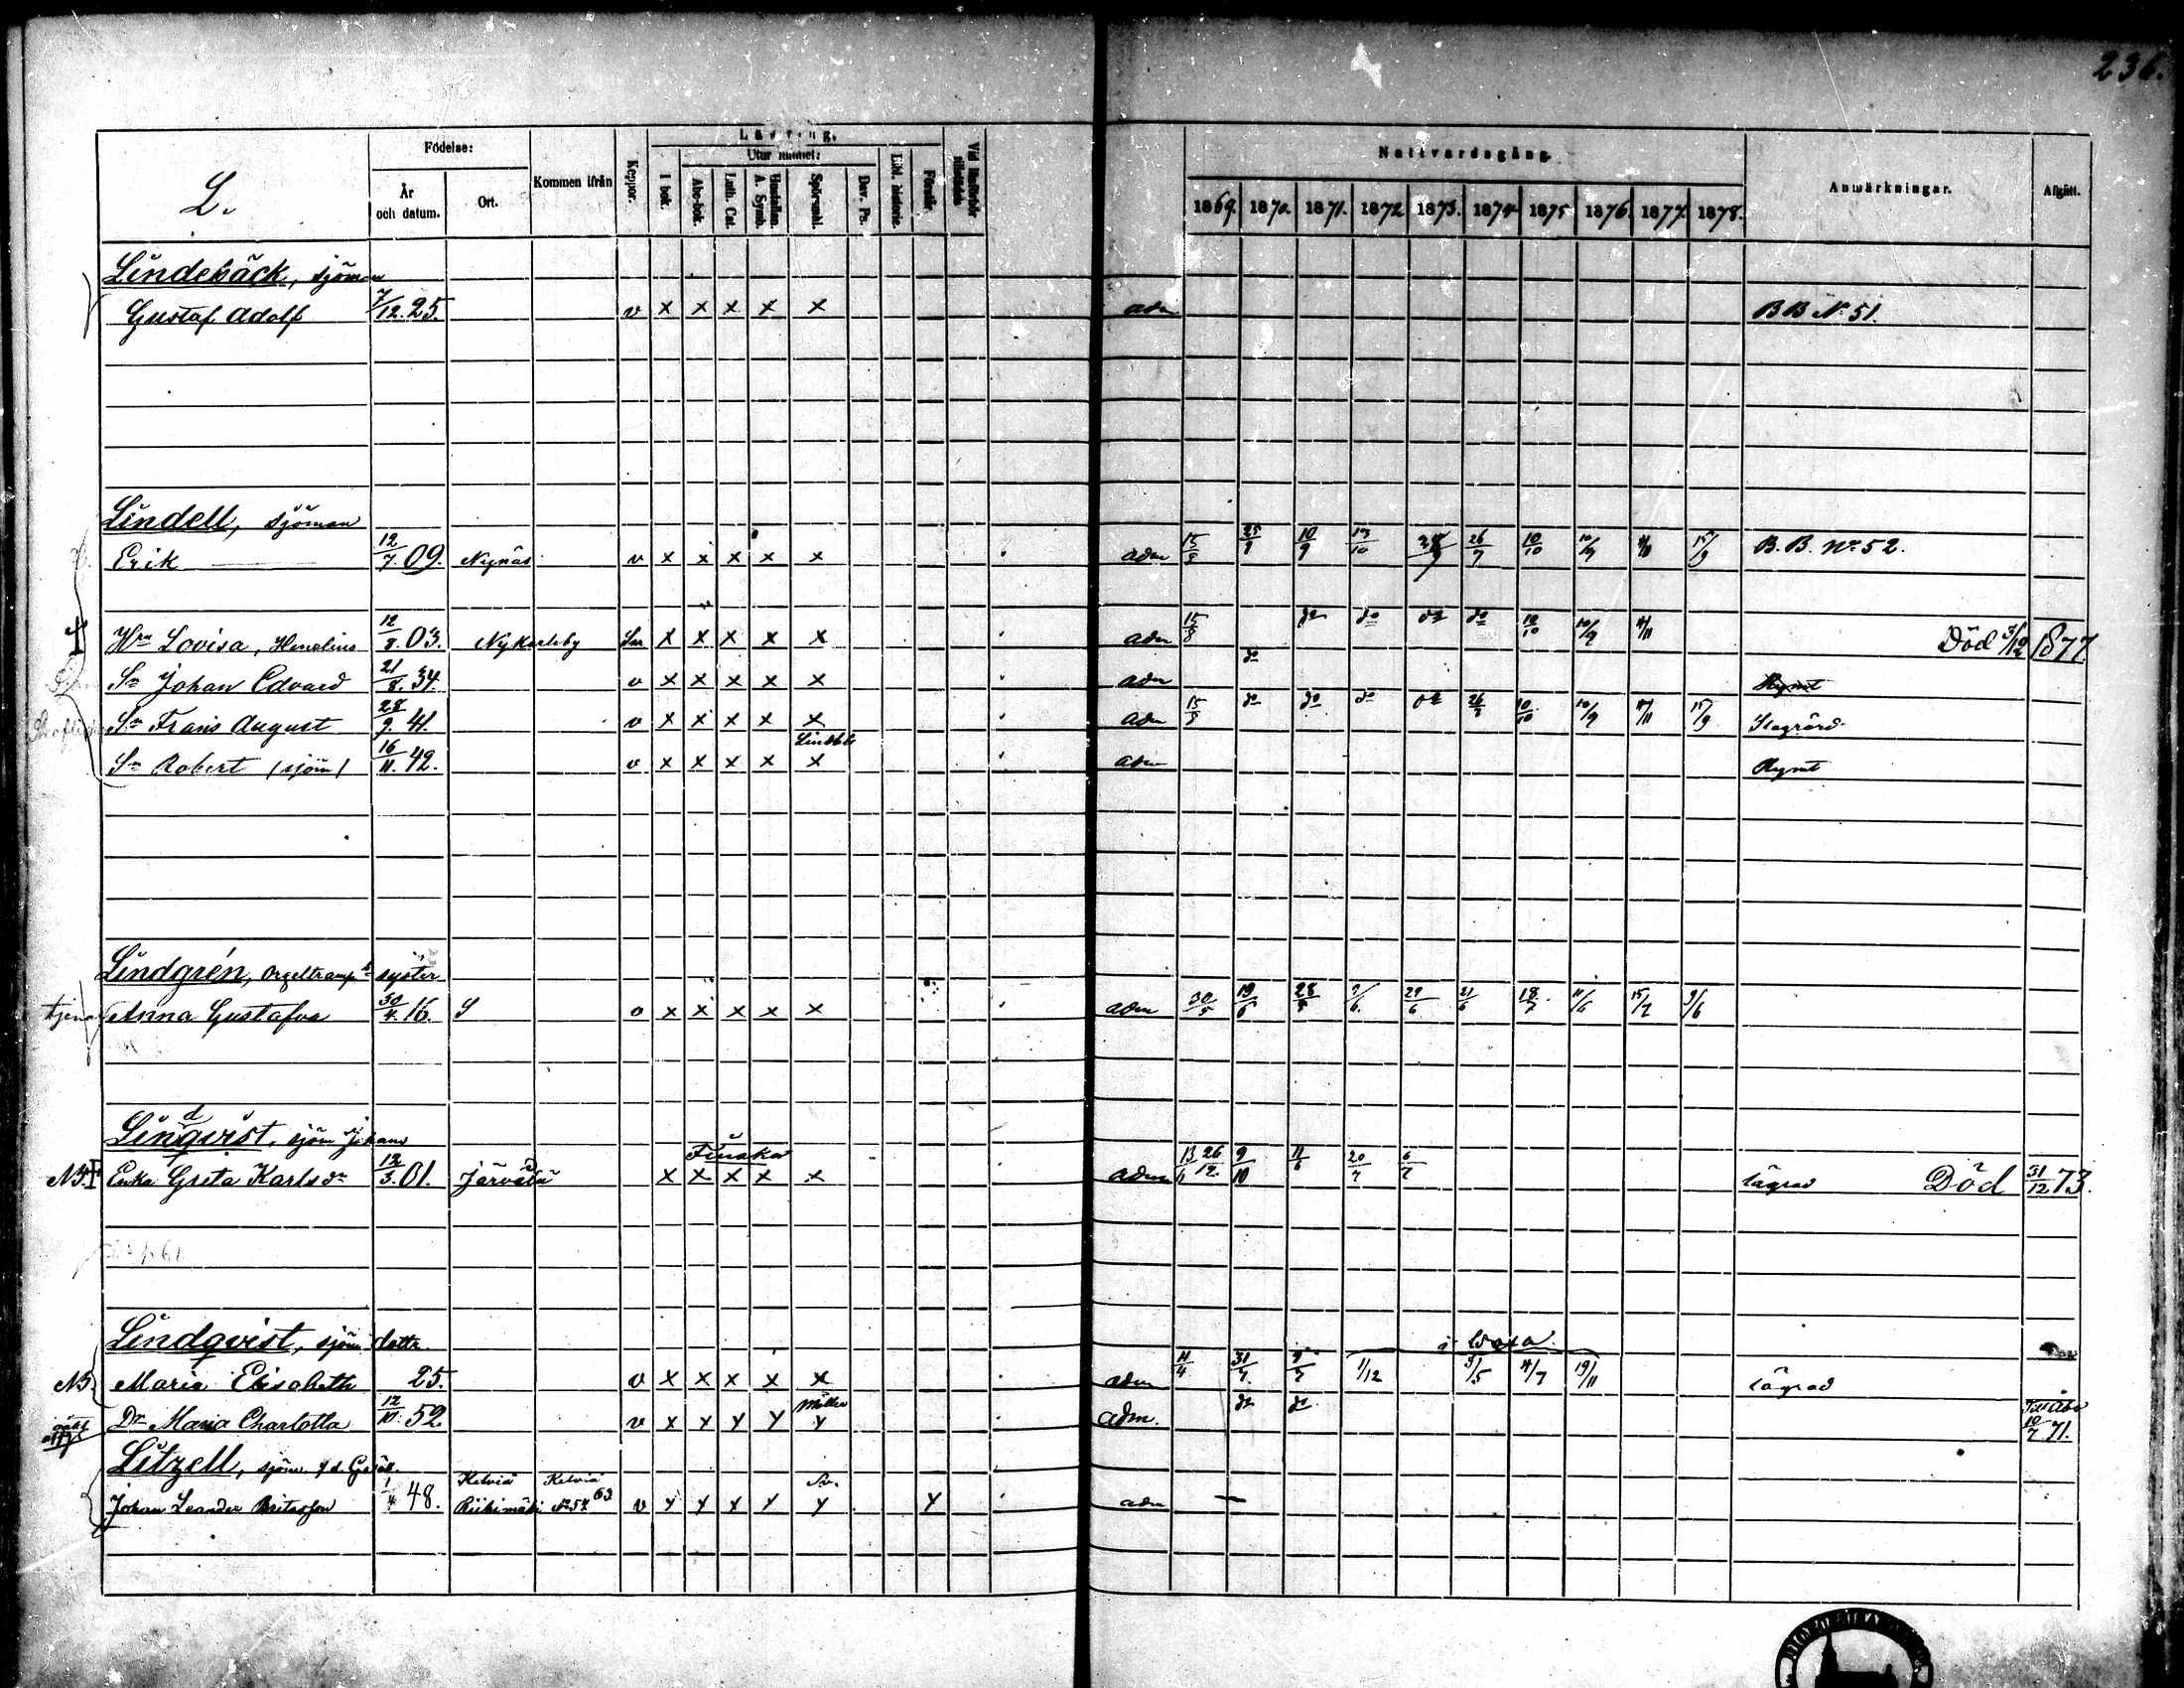 236.
L.
Födelse:
År och datum.
Ort.
Kommen ifrån
Koppor.
Läsning.
I bok.
Utur minnet:
Abc-bok.
Luth. Cat.
Hustaflan. A. Symb.
Spörsmål.
Dav. Ps.
Bibl. historie.
Förstår.
Vid läsförhör tillstädes
Nattvardsgång.
1869. 1870. 1871. 1872 1873. 1874 1875 1876. 1877. 1878.
Anmärkningar.
Afgått.
Lindebäck, sjöman
Gustaf Adolf 7/12. 25. v x x x x x adm B B No 51.
Lindell, sjöman
Erik 12/7. 09. Nynäs v x x x x x adm 15/8 25/9 10/9 13/10 26/7 10/10 10/9 4/11 15/9 B. B. No 52.
Hru Lovisa, Henelius 12/8. 03. Nykarleby x x x x x adm 15/8 do do do do do 10/10 10/9 4/11 Död 3/12 1877
Sn Johan Edvard 21/8. 34. v x x x x x adm Rymt
Sn Frans August 28/9. 41. v x x x x x adm 15/8 do do do do 26/7 10/10 10/9 4/11 15/9
Sn Robert (sjöm) 16/11. 42. v x x x x x adm Rymt
Lindgrén, Orgeltramps syster
tjenar Anna Gustafva 30/4 16. S v x x x x x adm 30/5 19/6 28/5 2/6. 29/6 21/6 18/7 11/6 15/7 9/6
Lindqvist, sjöm Johans
Finska
NB. Erika Greta Karlsdr 12/3. 01. x x x x x adm 13/6 26/12. 9/10 11/6 20/7 6/7 lägrad Död 31/12 73.
Lindqvist, sjöm dottr.
i Wasa
NB Maria Elisabeth 25. v x x x x x adm 11/4 31/7. 9/7 1/12 3/5 4/7 19/11 lägrad
Möller
Dr Maria Charlotta 12/10. 52. v x x x x x adm. do do Till Åbo 10/7 71.
Litzell, sjöm.
Kelviå Kelviå
Johan Leander Britasson 1/4 48. Riihimäki No 54 63 v x x x x x x adm —